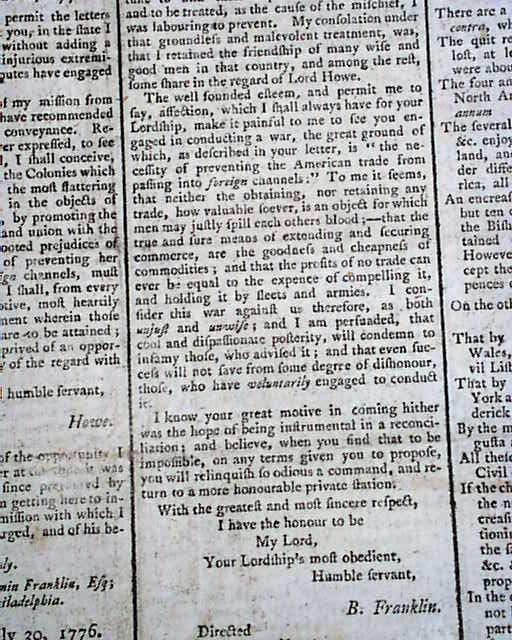 permit the letters
you, in the ſtate I
without adding a
injurious extremi-
putes have engaged
of my miſſion from
have recommended
conveyance. Re-
er expreſſed, to ſee
I, I ſhall conceive,
the Colonies which
the moſt flattering
in the objects of
by promoting the
and union with the
ooted prejudices of
of preventing her
channels, muſt
I ſhall, from every
otive, moſt heartily
ment wherein thoſe
are to be attained;
prived of an oppor-
of the regard with
humble ſervant,
Howe.
of the opportunity I
was
ſince prevented by
n getting here to in-
miſſion with which I
arged, and of his be-
min Franklin, Eſq;
iladelphia.
ly 20, 1776.
and to be treated, as the cauſe of the miſchief, I
was labouring to prevent. My conſolation under
that groundleſs and malevolent treatment, was,
that I retained the friendſhip of many wiſe and
good men in that country, and among the reſt,
ſome ſhare in the regard of Lord Howe.
The well founded eſteem, and permit me to
ſay, affection, which I ſhall always have for your
Lordſhip, make it painful to me to ſee you en-
gaged in conducting a war, the great ground of
which, as deſcribed in your letter, is "the ne-
ceſſity of preventing the American trade from
paſſing into foreign channels:" To me it ſeems,
that neither the obtaining, nor retaining any
trade, how valuable ſoever, is an object for which
men may juſtly ſpill each others blood;—that the
true and ſure means of extending and ſecuring
commerce, are the goodneſs and cheapneſs of
commodities; and that the profits of no trade can
ever be equal to the expence of compelling it,
and holding it by fleets and armies. I con-
ſider this war againſt us therefore, as both
unjuſt and unwiſe; and I am perſuaded, that
cool and diſpaſſionate poſterity, will condemn to
infamy thoſe, who adviſed it; and that even ſuc-
ceſs will not ſave from ſome degree of diſhonour,
thoſe, who have voluntarily engaged to conduct
it.
I know your great motive in coming hither
was the hope of being inſtrumental in a reconci-
liation; and believe, when you find that to be
impoſſible, on any terms given you to propoſe,
you will relinquiſh ſo odious a command, and re-
turn to a more honourable private ſtation.
With the greateſt and moſt ſincere reſpect,
I have the honour to be
My Lord,
Your Lordſhip's moſt obedient,
Humble ſervant,
B. Franklin.
Directed
There are a
contra, wh
The quit re
loſt, at le
were abou
The four an
North Am
annum
The ſeveral
&c. enjoy
land, and
der diffe
rica, all
An encreaſ
but ten
the Biſh
tained
Howeve
cept the
pences
On the oth
That by
Wales,
vil Liſt
That by
York a
derick
By the m
guſta a
All theſe
Civil
If the ch
the n
creaſi
tioni
the ſa
&c. &
prop
In the
not
part